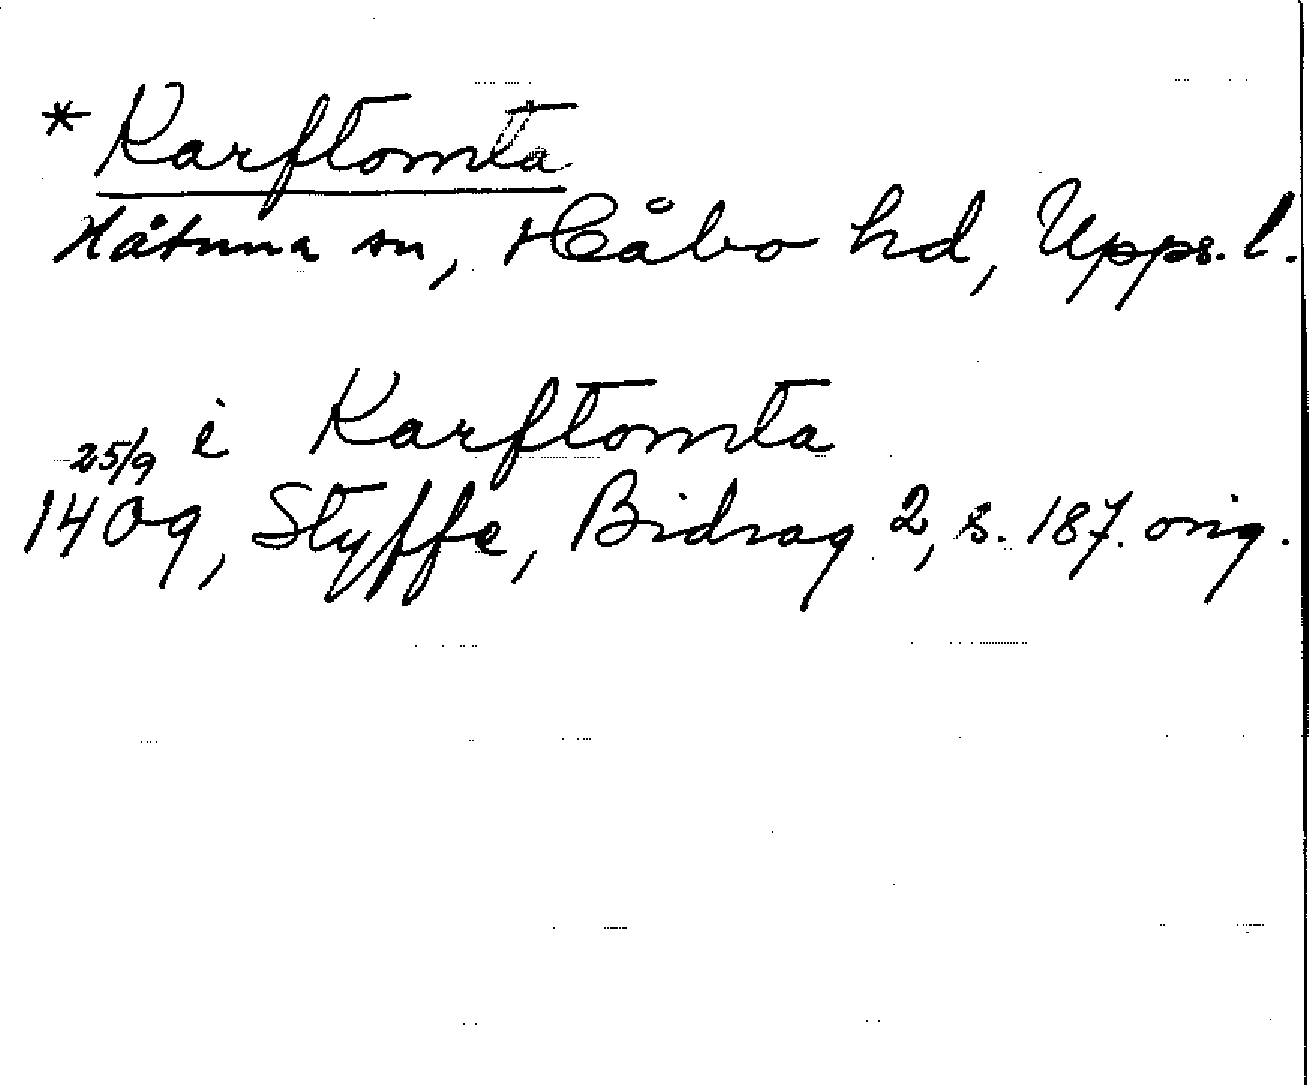 * Karftomta
Håtuna sn, Håbo hd, Upps. l.
i Karftomta
25/9
1409, Styffe, Bidrag 2, s. 187. orig.